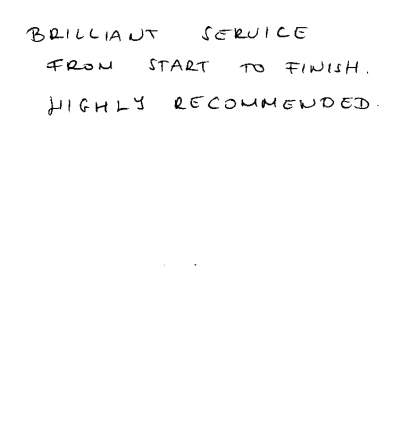 BRILLIANT SERVICE
FROM START TO FINISH.
HIGHLY RECOMMENDED.